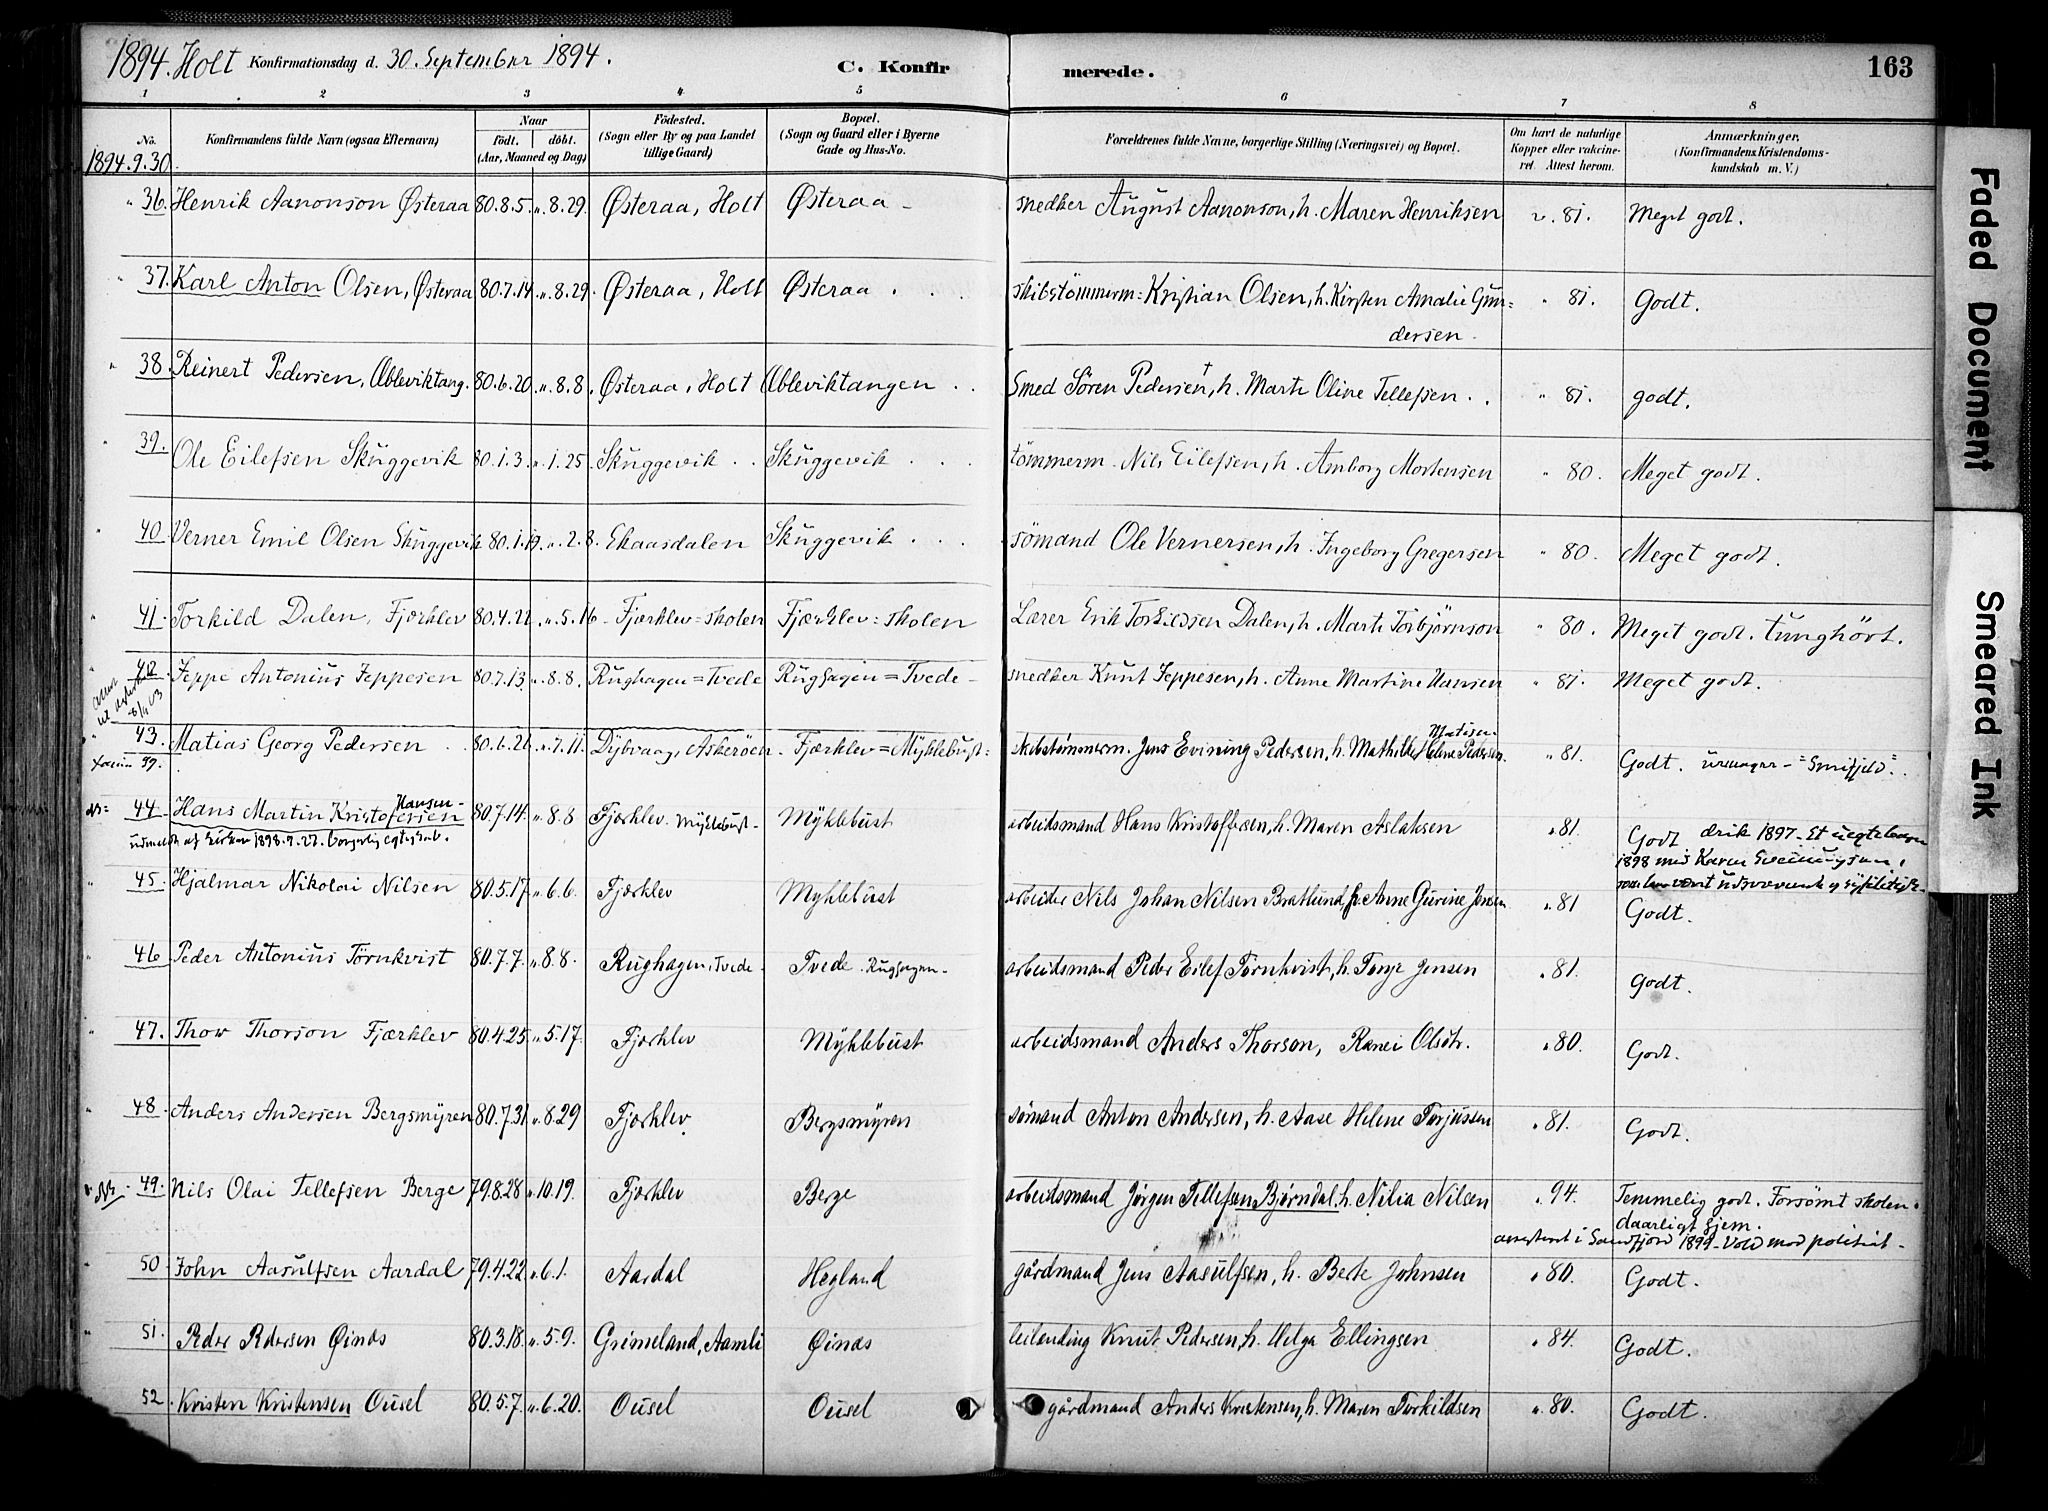 1894. Holt Konfirmationsdag d. 30. September 1894. C. Konfirmerede. 163
1 2 3 4 5 6 7 8
No. Konfirmandens fulde Navn (ogsaa Efternavn) Naar födt. döbt. (Aar, Maaned og Dag) Födested. (Sogn eller By og paa Landet tillige Gaard) Bopæl. (Sogn og Gaard eller i Byerne Gade og Hus-No. Forældrenes fulde Navne, borgerlige Stilling (Næringsvei) og Bopæl. Om havt de naturlige Kopper eller vakcineret. Attest herom. Anmærkninger. (Konfirmandens Kristendomskundskab m. V.)
1894.9.30.
" 36. Henrik Aanonson Østeraa 80.8.5. ". 8.29. Østeraa, Holt Østeraa - snedker August Aanonson, h. Maren Henriksen v. 81. Meget godt.
" 37. Karl Anton Olsen, Østeraa 80.7.14. ". 8.29. Østeraa, Holt Østeraa . . . skibstömmerm: Kristian Olsen, h. Kirsten Amalie Gun=
dersen. " 81. Godt.
" 38. Reinert Pedersen, Æbleviktang. 80.6.20. ". 8.8. Østeraa, Holt Æbleviktangen . . Smed Sören Pedersen †, h. Marte Oline Tellefsen . . " 81. godt.
" 39. Ole Eilefsen Skuggevik 80.1.3. ". 1.25. Skuggevik . . Skuggevik . . . tömmerm. Nils Eilefsen, h. Amborg Mortensen " 80. Meget godt.
" 40. Verner Emil Olsen Skuggevik 80.1.19. ". 2.8. Ekaasdalen Skuggevik . . . sömand Ole Vernersen, h. Ingeborg Gregersen " 80. Meget godt.
" 41. Torkild Dalen, Fjærklev 80.4.22. ". 5.16 - Fjærklev=skolen Fjærklev=skolen Lærer Erik Torkildsen Dalen, h. Marte Torbjörnson " 80. Meget godt. tunghört.
" 42 Jeppe Antonius Jeppesen 80.7.13. ". 8.8. Rughagen=Tvede Rughagen=Tvede - snedker Knut Jeppesen, h. Anne Martine Hansen " 81. Meget godt.
" 43. Matias Georg Pedersen . . 80.6.26. ". 7.11. Dybvaag, Askerøen. Fjærklev=Myklebust= skibstømmerm. Jens Evining Pedersen, h. Mathilde Helene Pedersen. " 81. Godt.
44. Hans Martin Kristofersen Hansen - 80.7.14. ". 8.8 Fjærklev. Myklebust - Myklebust arbeidsmand Hans Kristoffersen, h. Maren Aslaksen " 81. Godt drik 1897. Et uegtebarn
udmeldt af kirken 1898.9.27. borgerlig egteskab.
1898 med Karen
" 45. Hjalmar Nikolai Nilsen 80.5.17. ". 6.6. Fjærklev Myklebust arbeider Nils Johan Nilsen Bratlund, h. Anne Gurine Jensen ". 81 Godt.
" 46 Peder Antonius Törnkvist 80.7.7. ". 8.8. Rughagen, Tvede. Tvede. Rughagen - arbeidsmand Peder Eilef Törnkvist, h. Tonje Jensen ". 81. Godt.
" 47. Thow Thorson Fjærklev 80.4.25. ". 5.17. Fjærklev Myklebust arbeidsmand Anders Thorson, Ranei Olsdtr. ". 80. Godt.
" 48. Anders Andersen Bergsmyren 80.7.31. ". 8.29 Fjærklev Bergsmyren sømand Anton Andersen, h. Aase Helene Torjussen ". 81. Godt.
" 49. Nils Olai Tellefsen Berge 79.8.28. ". 10.19. Fjærklev Berge arbeidsmand Jørgen Tellefsen Bjørndal, h. Nilia Nilsen ". 94. Temmelig godt. Forsømt skolen.
daarligt hjem.
arresteret i Sandfjord 1899 - Vold mod politiet -
" 50. John Aasulfsen Aardal 79.4.22. ". 6.1. Aardal Hegland gårdmand Jens Aasulfsen, h. Berte Johnsen ". 80. Godt.
" 51. Peder Pedersen Øinæs 80.3.18. ". 5.9. Grimeland, Aamli Øinæs leilending Knut Pedersen, h. Helga Ellingsen ". 84. Godt.
52. Kristen Kristensen Ousel 80.5.7. ". 6.20. Ousel Ousel gårdmand Anders Kristensen, h. Maren Torkildsen ". 80. Godt.
Faded Document
Smeared Ink